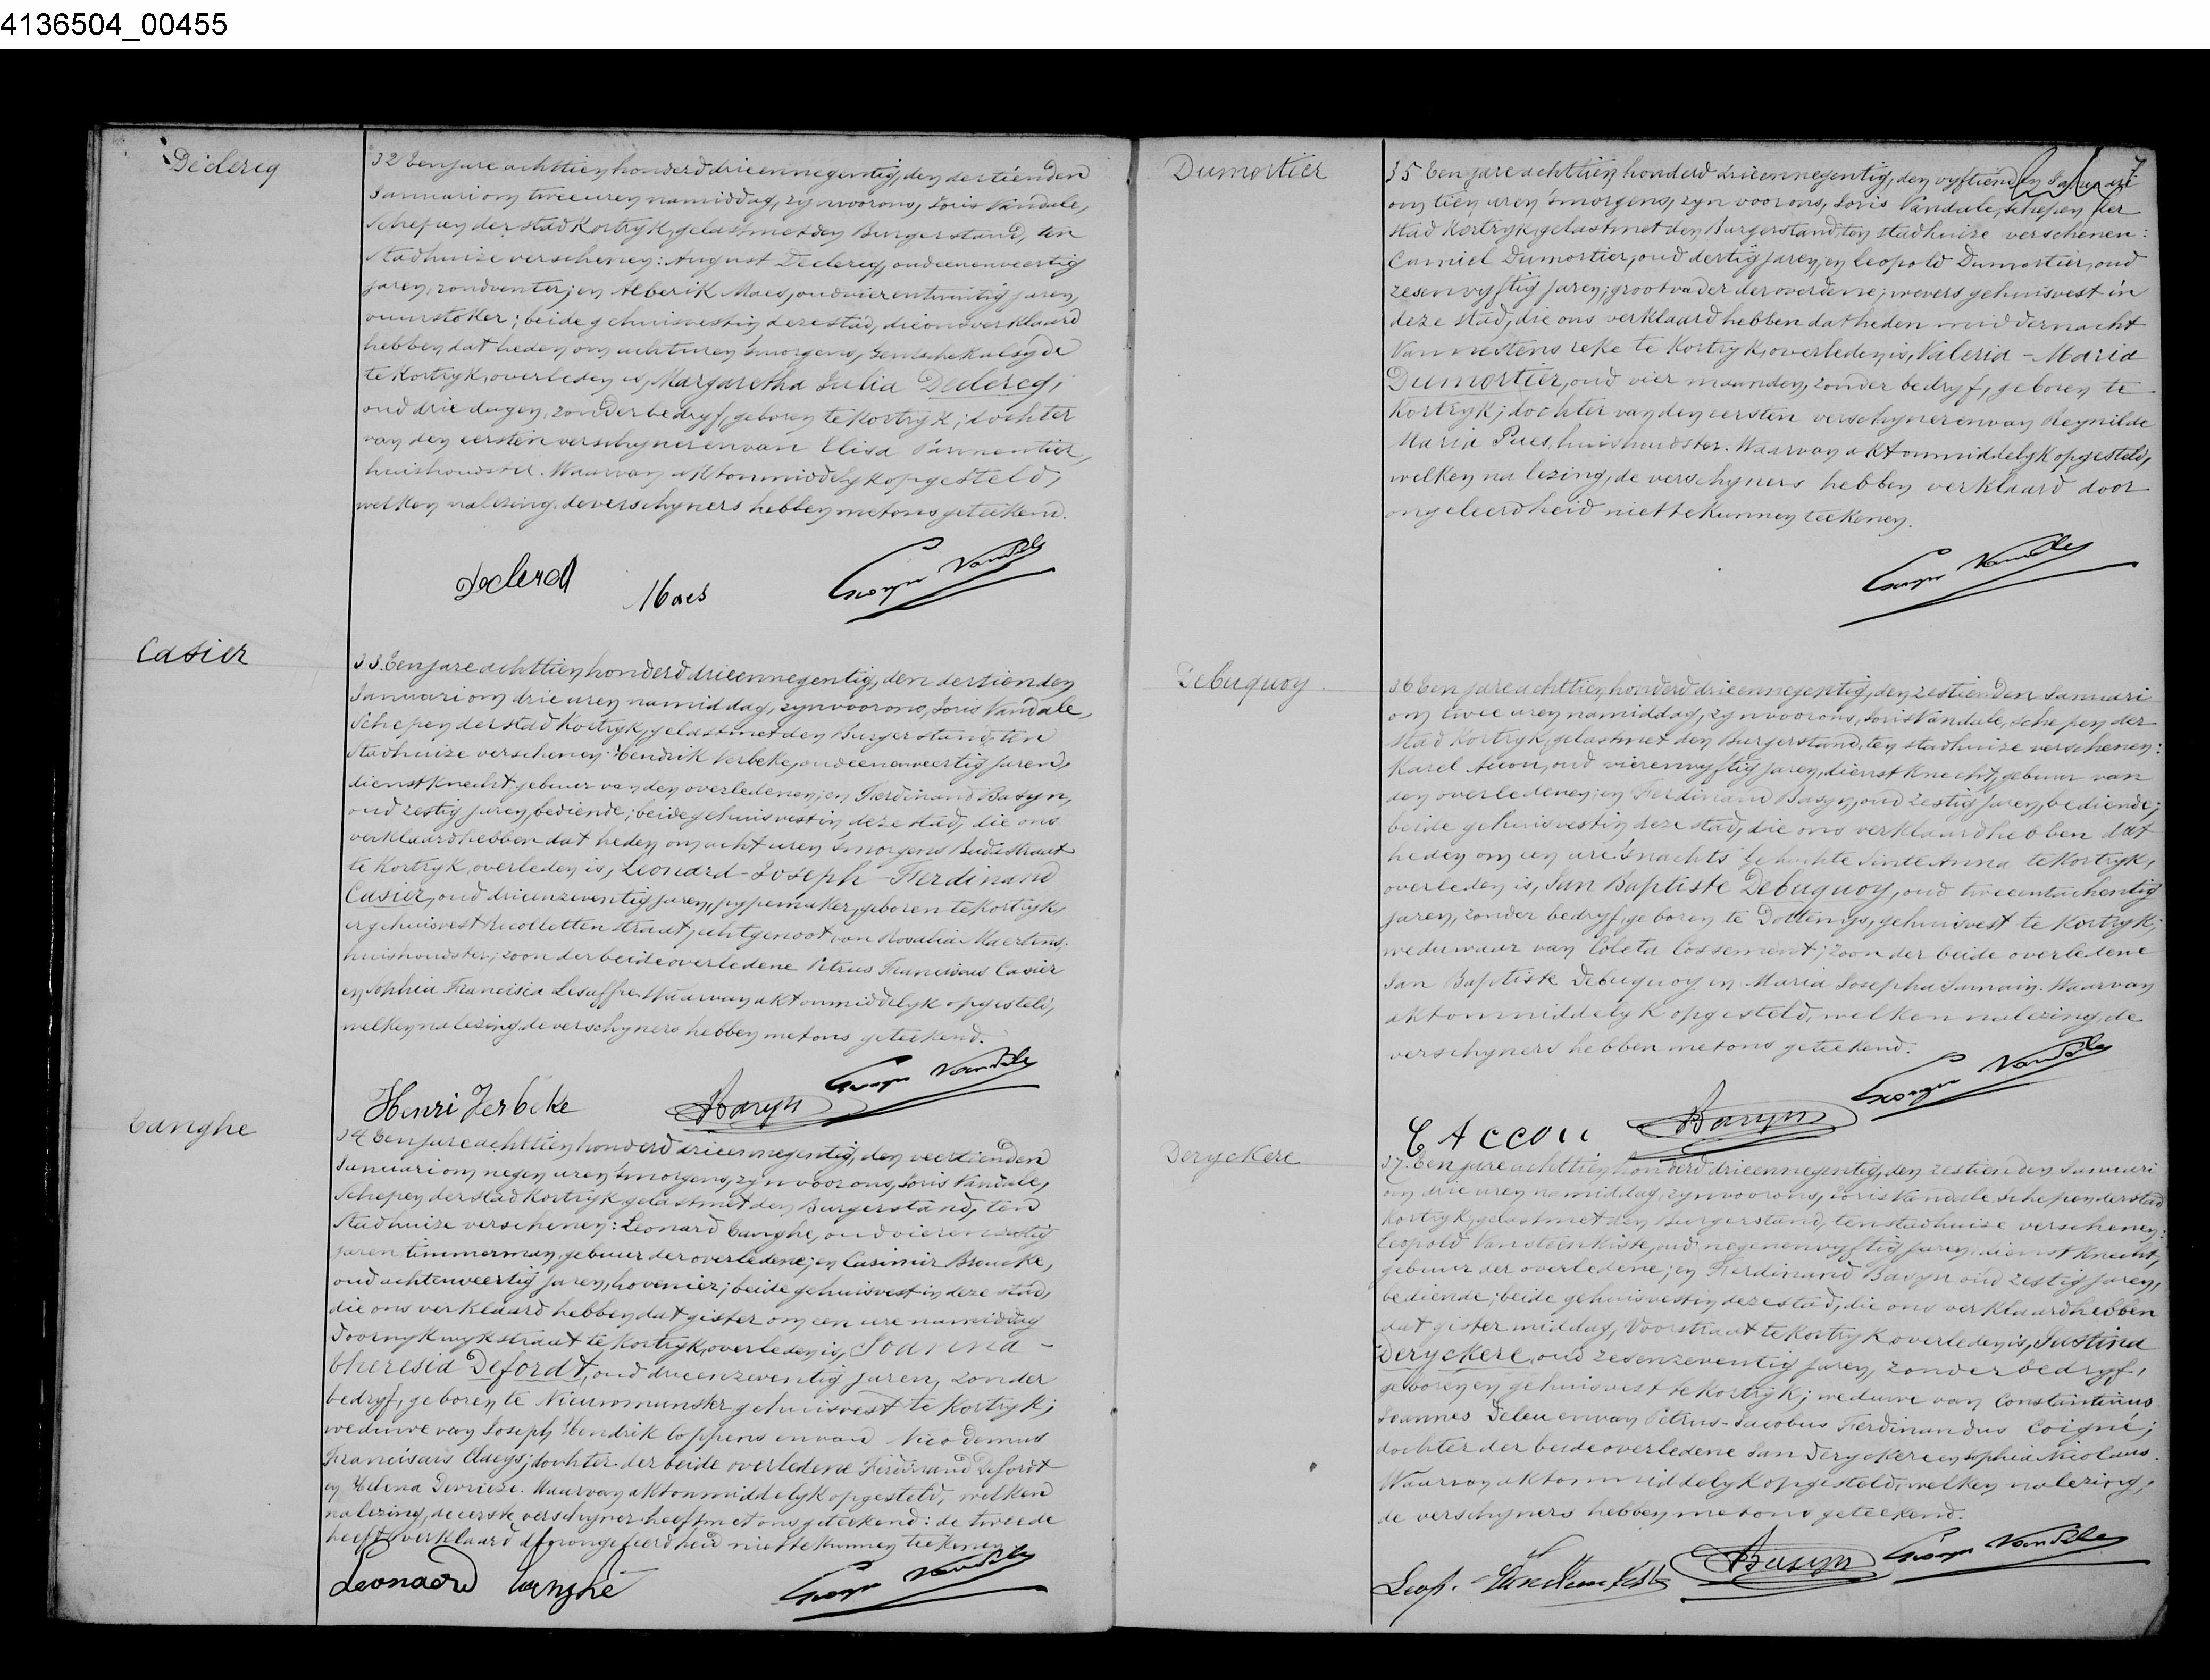 4136504_00455
Declercq
32 Een jare achttien honderd drieennegentig, den dertienden
Januari om twee uren namiddag, zyn voor ons, Joris Vandale,
Schepen der stad Kortryk, gelast met den Burgerstand, ten
Stadhuize verschenen: August Declercq, oud eenenveertig
jaren, zandventer; en Alberik Maes, oud vierentwintig jaren,
vuurstoker; beide gehuisvest in deze stad, die ons verklaard
hebben dat heden om acht uren 's morgens, Gentsche Kalsyde
te Kortryk, overleden is, Margaretha Julia Declercq,
oud drie dagen, zonder bedryf, geboren te Kortryk; dochter
van den eersten verschyner en van Elisa Parmentier,
huishoudster. Waarvan akt onmiddelyk opgesteld,
welken na lezing, de verschyners hebben met ons geteekend.
Declercq Maes George Vandale
Casier
33. Een jare achttien honderd drieennegentig, den dertienden
Januari om drie uren namiddag, zyn voor ons, Joris Vandale,
Schepen der stad Kortryk, gelast met den Burgerstand, ten
Stadhuize verschenen: Hendrik Verbeke, oud eenenveertig jaren,
dienstknecht, gebuur van den overledenen; en Ferdinand Basyn,
oud zestig jaren, bediende; beide gehuisvest in deze stad, die ons
verklaard hebben dat heden om acht uren 's morgens Budastraat
te Kortryk, overleden is, Leonard-Joseph-Ferdinand
Casier, oud drieenzeventig jaren, pypemaker, geboren te Kortryk,
er gehuisvest Recolletten straat, echtgenoot van Rosalia Maertens,
huishoudster; zoon der beide overledene Petrus Franciscus Casier
en Sophia Francisca Lesaffre. Waarvan akt onmiddelyk opgesteld,
welken na lezing, de verschyners hebben met ons geteekend.
Henri Verbeke Basyn George Vandale
Canghe
34 Een jare achttien honderd drieennegentig, den veertienden
Januari om negen uren 's morgens, zyn voor ons, Joris Vandale,
Schepen der stad Kortryk gelast met den Burgerstand, ten
Stadhuize verschenen: Leonard Canghe, oud vierenzestig
jaren timmerman, gebuur der overledene; en Casimir Broucke,
oud achtenveertig jaren, hovenier; beide gehuisvest in deze stad,
die ons verklaard hebben dat gister om een ure namiddag
Doornykwykstraat te Kortryk, overleden is, Joanna-
theresia Defordt, oud drieenzeventig jaren, zonder
bedryf, geboren te Nieuwmunster gehuisvest te Kortryk;
weduwe van Joseph Hendrik Coppens en van Nicodemus
Franciscus Claeys; dochter der beide overledene Ferdinand Defordt
en Helena Devrieze. Waarvan akt onmiddelyk opgesteld, welken
na lezing, de eerste verschyner heeft met ons geteekend: de tweede
heeft verklaard door ongeleerdheid niet te kunnen teekenen.
Leonaord Canghe George Vandale
7
Dumortier
35 Een jare achttien honderd drieennegentig, den vyftienden Januari
om tien uren 's morgens, zyn voor ons, Joris Vandale, Schepen der
stad Kortryk, gelast met den Burgerstand, ten stadhuize verschenen:
Camiel Dumortier, oud dertig jaren, en Leopold Dumortier, oud
zesenvyftig jaren; grootvader der overledene; wevers gehuisvest in
deze stad, die ons verklaard hebben dat heden middernacht
Vanmestens reke te Kortryk, overleden is, Valeria-Maria
Dumortier, oud vier maanden, zonder bedryf, geboren te
Kortryk; dochter van den eersten verschyner en van Reynilde
Maria Pues, huishoudster. Waarvan akt onmiddelyk opgesteld,
welken na lezing, de verschyners hebben verklaard door
ongeleerdheid niet te kunnen teekenen.
George Vandale
Debuquoy
36 Een jare achttien honderd drieennegentig, den zestienden Januari
om twee uren namiddag, zyn voor ons, Joris Vandale, Schepen der
stad Kortryk, gelast met den Burgerstand, ten stadhuize verschenen:
Karel Accou, oud vierenvyftig jaren, dienstknecht, gebuur van
den overledenen; en Ferdinand Basyn, oud zestig jaren, bediende;
beide gehuisvest in deze stad, die ons verklaard hebben dat
heden om een ure 's nachts Gehuchte Sinte Anna te Kortryk,
overleden is, Jan Baptiste Debuquoy, oud tweeentachentig
jaren, zonder bedryf, geboren te Dottenys, gehuisvest te Kortryk;
weduwaar van Coleta Cossement; zoon der beide overledene
Jan Baptiste Debuquoy en Maria Josepha Samain. Waarvan
akt onmiddelyk opgesteld, welken na lezing, de
verschyners hebben met ons geteekend.
C Accou Basyn George Vandale
Deryckere
37. Een jare achttien honderd drieennegentig, den zestienden Januari
om drie uren namiddag, zyn voor ons, Joris Vandale, Schepen der stad
Kortryk, gelast met den Burgerstand, ten stadhuize verschenen:
Leopold Vansteenkiste, oud negenenvyftig jaren, dienstknecht,
gebuur der overledene; en Ferdinand Basyn oud zestig jaren,
bediende; beide gehuisvest in deze stad, die ons verklaard hebben
dat gister middag, Voorstraat te Kortryk overleden is, Justina
Deryckere, oud zesenzeventig jaren, zonder bedryf,
geboren en gehuisvest te Kortryk; weduwe van Constantinus
Joannes Deleu en van Petrus-Jacobus Ferdinandus Coigné;
dochter der beide overledene Jan Deryckere en Sophia Nicolaus.
Waarvan akt onmiddelyk opgesteld, welken na lezing,
de verschyners hebben met ons geteekend.
Leop. Vansteenkiste Basyn George Vandale